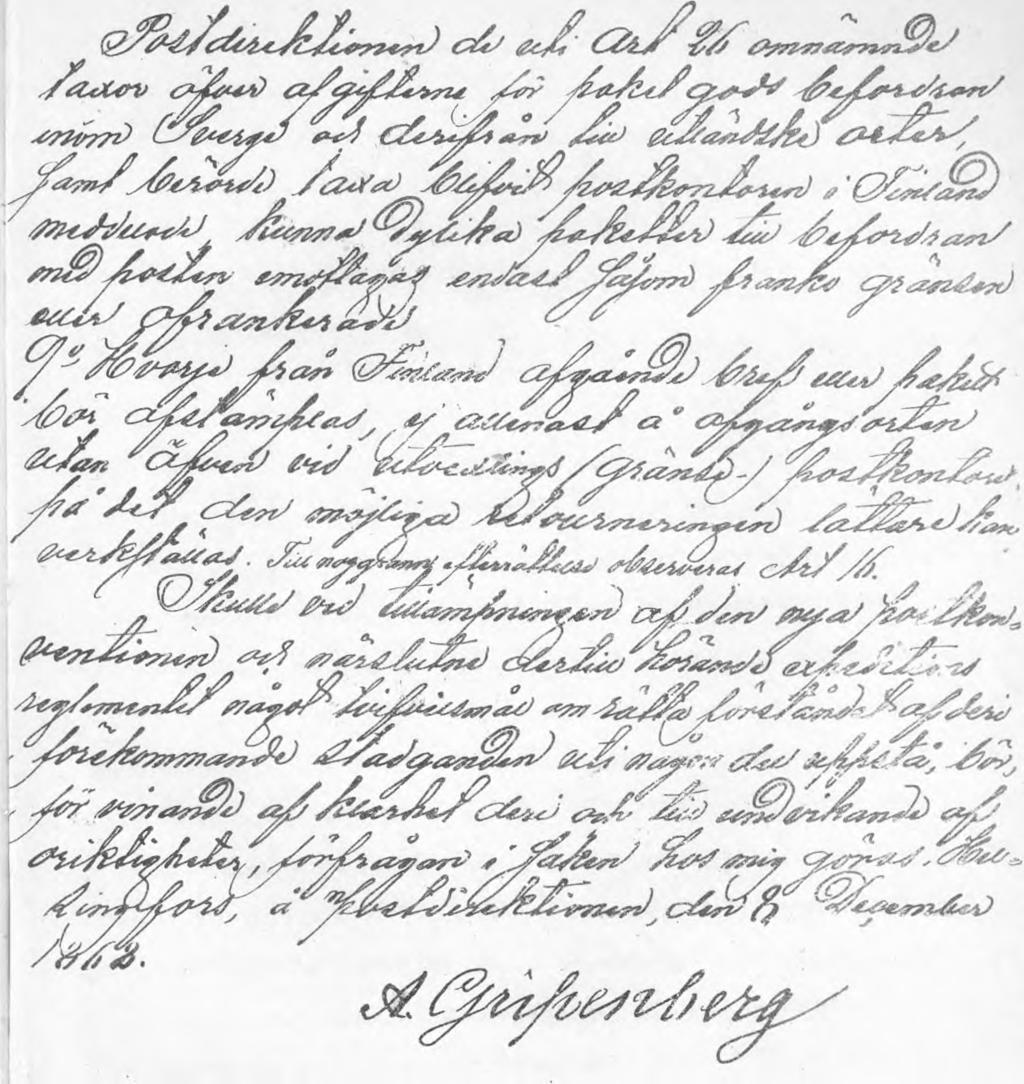 Postdirektionen de uti Art 26 omnämnde
taxor öfver afgifterne för paket gods befordran
inom Sverge och derifrån till utländske orter,
samt berörde taxa blifvit postkontoren i Finland
meddelade, kunna dylika paketter till befordran
med posten emottagas endast såsom franko gränsen
eller ofrankerade
9º Hvarje från Finland afgående bref eller pakett
bör afstämplas, ej allenast å afgångsorten
utan äfven vid utvexlings (gräns-) postkontoret
på det den möjliga retourneringen lättare kan
verkställas. Till noggrann efterrättelse observeras Art 16.
Skulle vid tillämpningen af den nya postkon=
ventionen och närslutne dertill hörande expeditions
reglementet något tvifvelsmål om rätta förståndet af deri
förekommande stadganden uti någon del uppstå, bör,
för vinande af klarhet deri och till undvikande af
oriktigheter, förfrågan i saken hos mig göras. Hel=
singfors, å Postdirektionen, den 8 December
1868.
A. Gripenberg